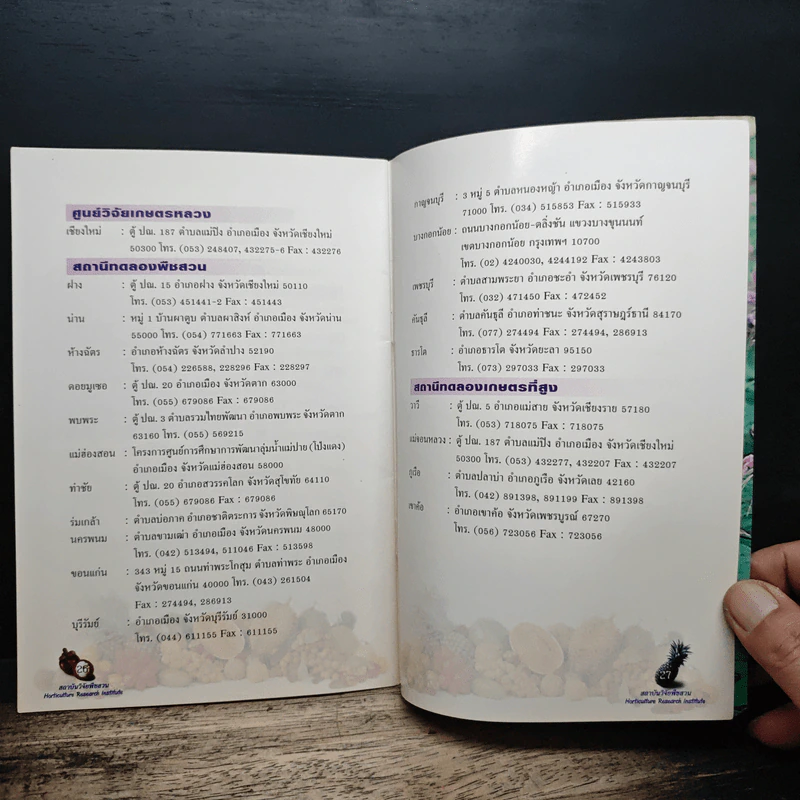 ศูนย์วิจัยเกษตรหลวง
เชียงใหม่ : ตู้ ปณ. 187 ตำบลแม่ปิง อำเภอเมือง จังหวัดเชียงใหม่
50300 โทร. (053) 248407, 432275-6 Fax : 432276
สถานีทดลองพืชสวน
ฝาง : ตู้ ปณ. 15 อำเภอฝาง จังหวัดเชียงใหม่ 50110
โทร. (053) 451441-2 Fax : 451443
น่าน : หมู่ 1 บ้านผาตูบ ตำบลผาสิงห์ อำเภอเมือง จังหวัดน่าน
55000 โทร. (054) 771663 Fax : 771663
ห้างฉัตร : อำเภอห้างฉัตร จังหวัดลำปาง 52190
โทร. (054) 226588, 228296 Fax : 228297
ดอยมูเซอ : ตู้ ปณ. 20 อำเภอเมือง จังหวัดตาก 63000
โทร. (055) 679086 Fax : 679086
พบพระ : ตู้ ปณ. 3 ตำบลรวมไทยพัฒนา อำเภอพบพระ จังหวัดตาก
63160 โทร. (055) 569215
แม่ฮ่องสอน : โครงการศูนย์การศึกษาการพัฒนาลุ่มน้ำแม่ปาย (โป่งแดง)
อำเภอเมือง จังหวัดแม่ฮ่องสอน 58000
ท่าชัย : ตู้ ปณ. 20 อำเภอสวรรคโลก จังหวัดสุโขทัย 64110
โทร. (055) 679086 Fax : 679086
ร่มเกล้า : ตำบลบ่อภาค อำเภอชาติตระการ จังหวัดพิษณุโลก 65170
นครพนม : ตำบลขามเฒ่า อำเภอเมือง จังหวัดนครพนม 48000
โทร. (042) 513494, 511046 Fax : 513598
ขอนแก่น : 343 หมู่ 15 ถนนท่าพระโกสุม ตำบลท่าพระ อำเภอเมือง
จังหวัดขอนแก่น 40000 โทร. (043) 261504
Fax : 274494, 286913
บุรีรัมย์ : อำเภอเมือง จังหวัดบุรีรัมย์ 31000
โทร. (044) 611155 Fax : 611155
26
สถาบันวิจัยพืชสวน
Horticulture Research Institute
กาญจนบุรี : 3 หมู่ 5 ตำบลหนองหญ้า อำเภอเมือง จังหวัดกาญจนบุรี
71000 โทร. (034) 515853 Fax : 515933
บางกอกน้อย : ถนนบางกอกน้อย-ตลิ่งชัน แขวงบางขุนนนท์
เขตบางกอกน้อย กรุงเทพฯ 10700
โทร. (02) 4240030, 4244192 Fax : 4243803
เพชรบุรี : ตำบลสามพระยา อำเภอชะอำ จังหวัดเพชรบุรี 76120
โทร. (032) 471450 Fax : 472452
คันธุลี : ตำบลคันธุลี อำเภอท่าชนะ จังหวัดสุราษฎร์ธานี 84170
โทร. (077) 274494 Fax : 274494, 286913
ธารโต : อำเภอธารโต จังหวัดยะลา 95150
โทร. (073) 297033 Fax : 297033
สถานีทดลองเกษตรที่สูง
วาวี : ตู้ ปณ. 5 อำเภอแม่สาย จังหวัดเชียงราย 57180
โทร. (053) 718075 Fax : 718075
แม่จอนหลวง : ตู้ ปณ. 187 ตำบลแม่ปิง อำเภอเมือง จังหวัดเชียงใหม่
50300 โทร. (053) 432277, 432207 Fax : 432207
ภูเรือ : ตำบลปลาบ่า อำเภอภูเรือ จังหวัดเลย 42160
โทร. (042) 891398, 891199 Fax : 891398
เขาค้อ : อำเภอเขาค้อ จังหวัดเพชรบูรณ์ 67270
โทร. (056) 723056 Fax : 723056
27
สถาบันวิจัยพืชสวน
Horticulture Research Institute